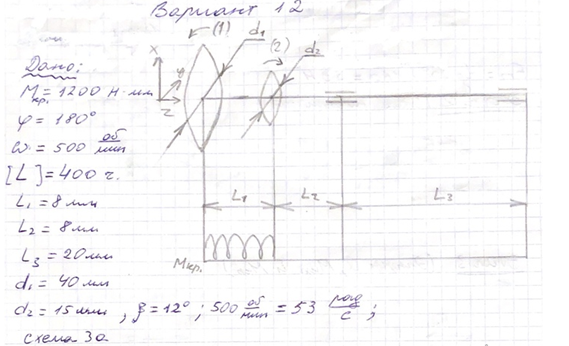 Вариант 12
Дано:
Mкр.=1200 Н·мм
φ = 180°
ω = 500 об/мин
[L] = 400 ч.
L1 = 8 мм
L2 = 8 мм
L3 = 20 мм
d1 = 40 мм
d2 = 15 мм, β = 12°; 500 об/мин = 53 рад/с;
схема 3а
(1)
d1
(2)
d2
x
y
z
L1
L2
L3
Mкр.